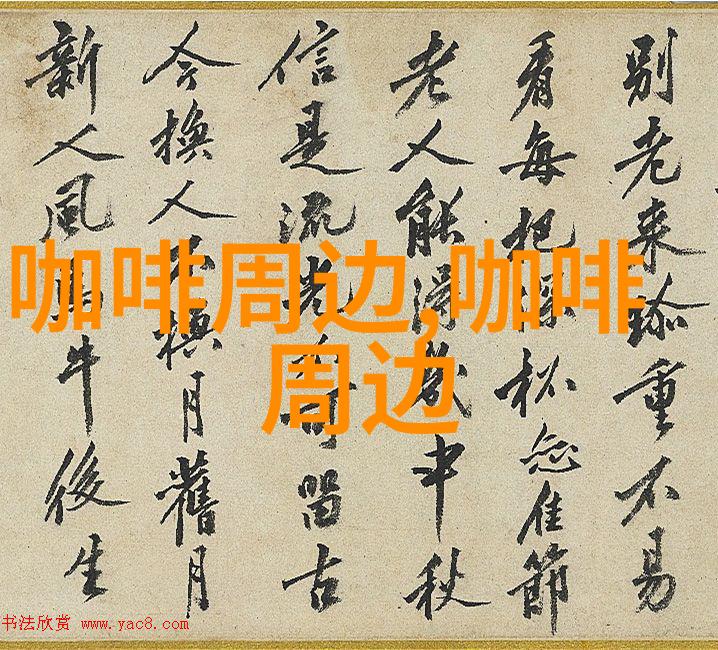 別老来珎重不易
看每把深杯佳節
老人能得幾中秋
信是流光不可留古
今換人不換月舊月
新人風馬牛後生
咖啡周边,咖啡
周边
书法欣赏 www.yac8.com